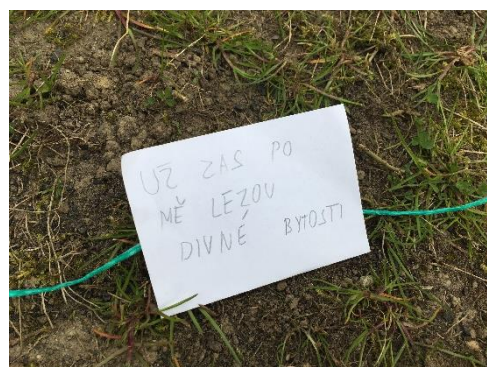 UŽ ZAS PO
MĚ LEZOU
DIVNÉ BYTOSTI